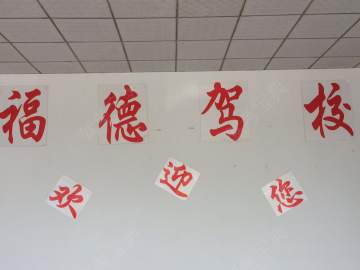 福德驾校
欢迎您